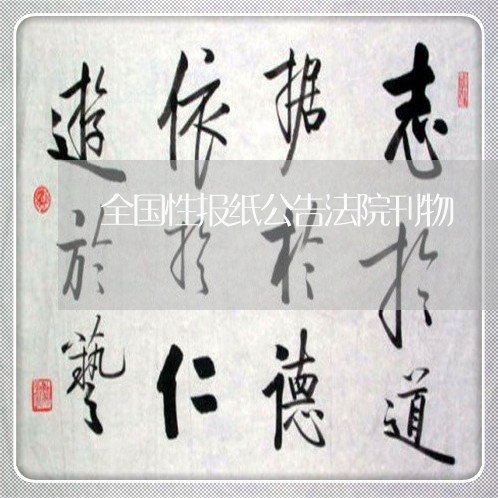 志於道
据於德
依於仁
遊於藝
全国性报纸公告法院刊物